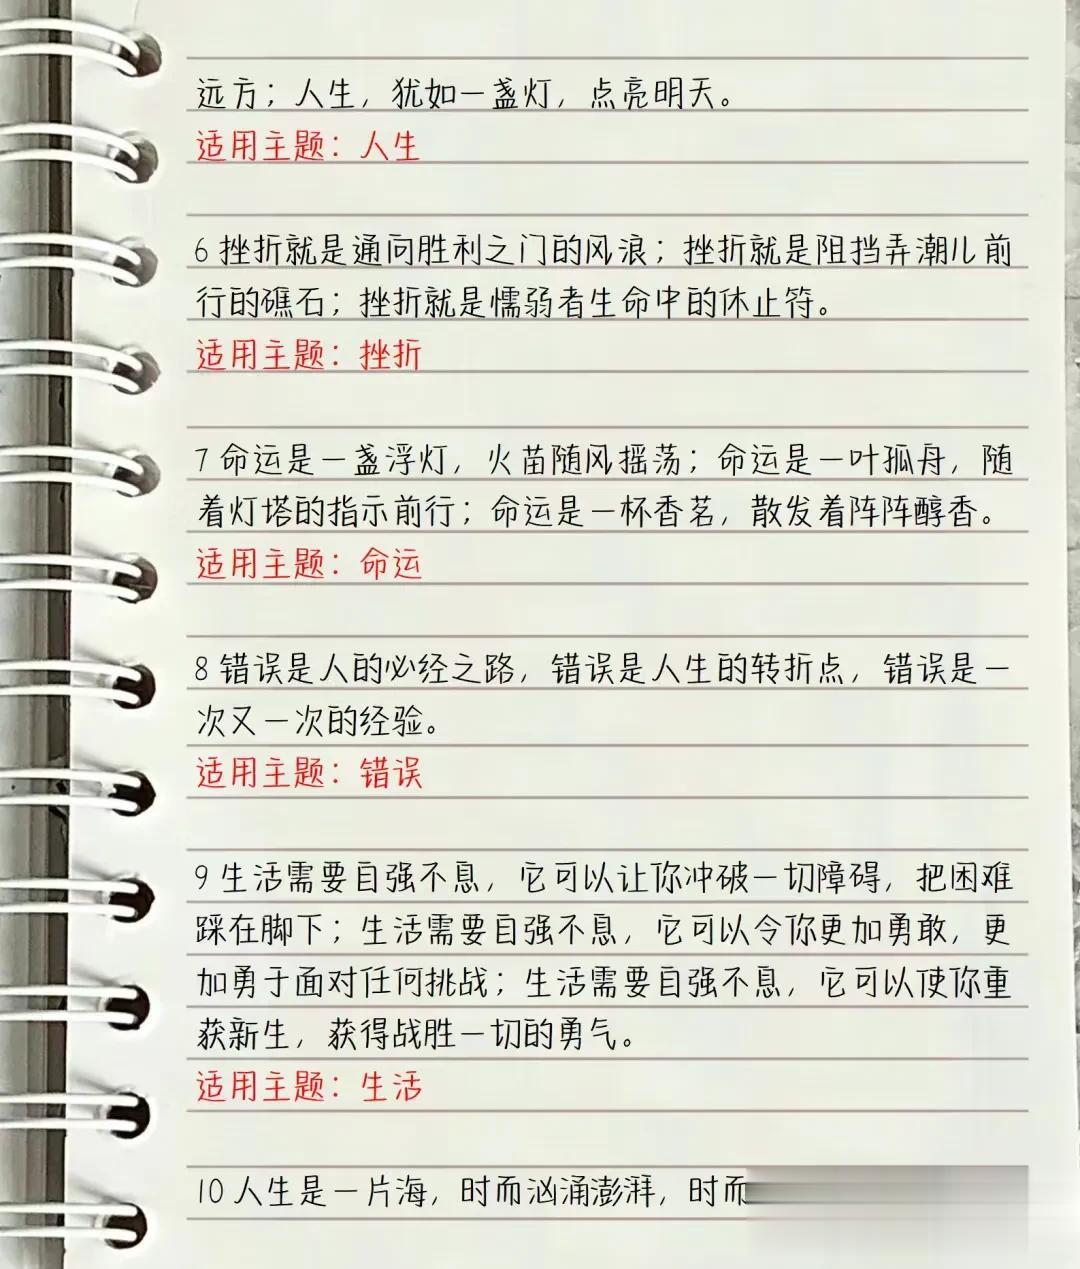 远方；人生，犹如一盏灯，点亮明天。
适用主题：人生
6 挫折就是通向胜利之门的风浪；挫折就是阻挡弄潮儿前
行的礁石；挫折就是懦弱者生命中的休止符。
适用主题：挫折
7 命运是一盏浮灯，火苗随风摇荡；命运是一叶孤舟，随
着灯塔的指示前行；命运是一杯香茗，散发着阵阵醇香。
适用主题：命运
8 错误是人的必经之路，错误是人生的转折点，错误是一
次又一次的经验。
适用主题：错误
9 生活需要自强不息，它可以让你冲破一切障碍，把困难
踩在脚下；生活需要自强不息，它可以令你更加勇敢，更
加勇于面对任何挑战；生活需要自强不息，它可以使你重
获新生，获得战胜一切的勇气。
适用主题：生活
10 人生是一片海，时而汹涌澎湃，时而